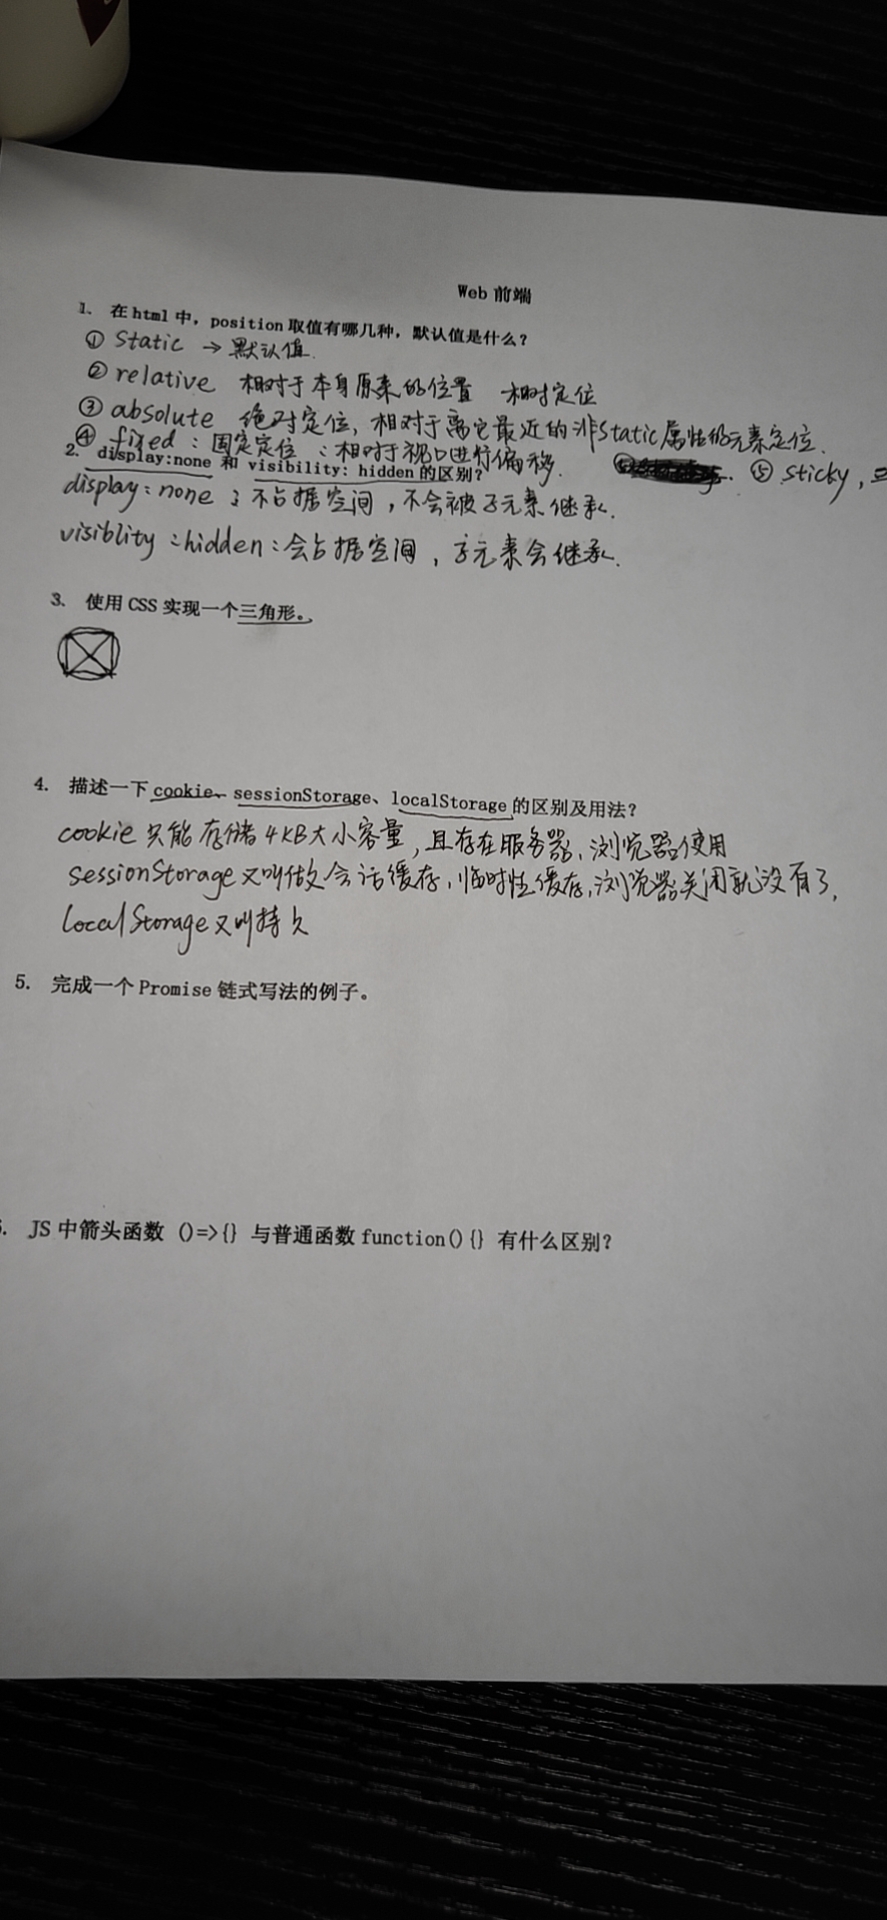 Web 前端
1. 在 html 中，position 取值有哪几种，默认值是什么？
① Static → 默认值.
② relative 相对于本身原来的位置 相对定位
③ absolute 绝对定位，相对于离它最近的非static属性的元素定位.
④ fixed：固定定位：相对于视口进行偏移. ⑤ sticky，
2. display:none 和 visibility: hidden 的区别？
display：none；不占据空间，不会被子元素继承.
visiblity：hidden：会占据空间，子元素会继承.
3. 使用 CSS 实现一个三角形。
4. 描述一下 cookie、sessionStorage、localStorage 的区别及用法？
cookie 只能存储4KB大小容量，且存在服务器、浏览器使用
sessionStorage又叫做会话缓存，临时性缓存，浏览器关闭就没有了，
localStorage又叫持久
5. 完成一个 Promise 链式写法的例子。
. JS 中箭头函数 ()=>{} 与普通函数 function(){} 有什么区别？